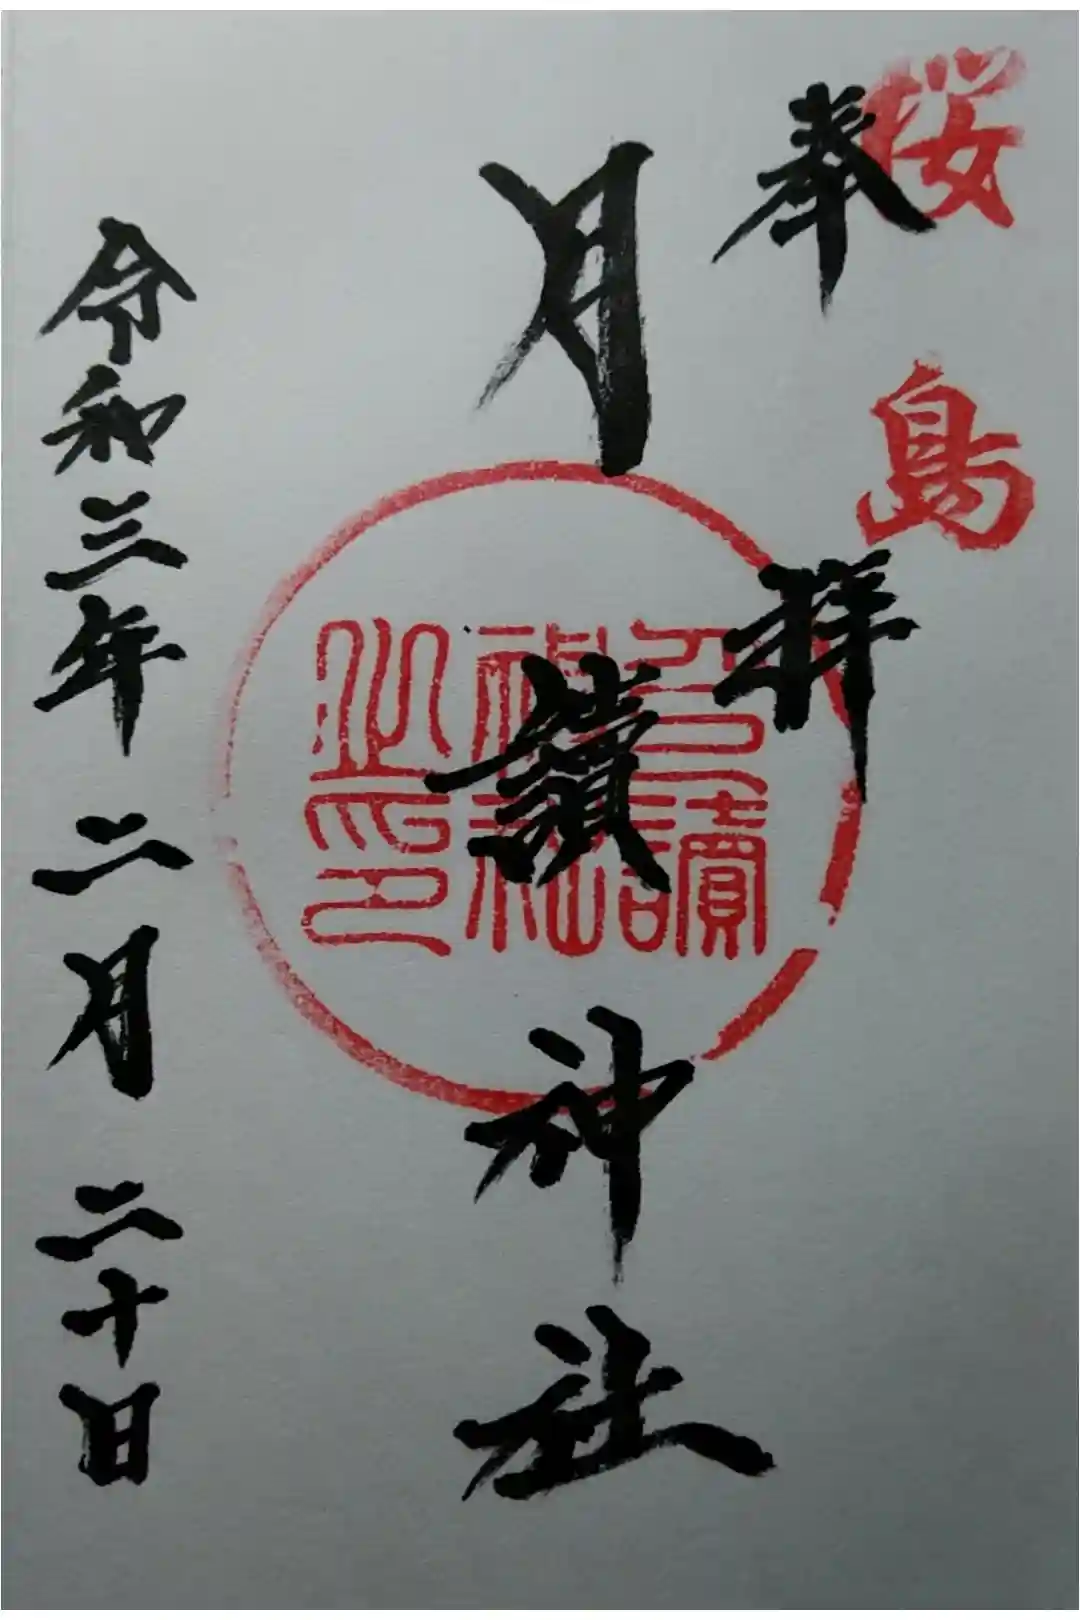 桜島
奉拝
月讀神社
月讀神社之印
令和三年二月二十日